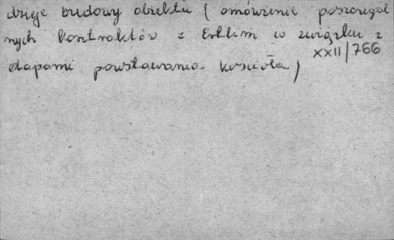 dzieje budowy obiektu (omówienie poszczegól
nych kontraktów z w związku z
XXII/766
etapami powstawania kościoła)